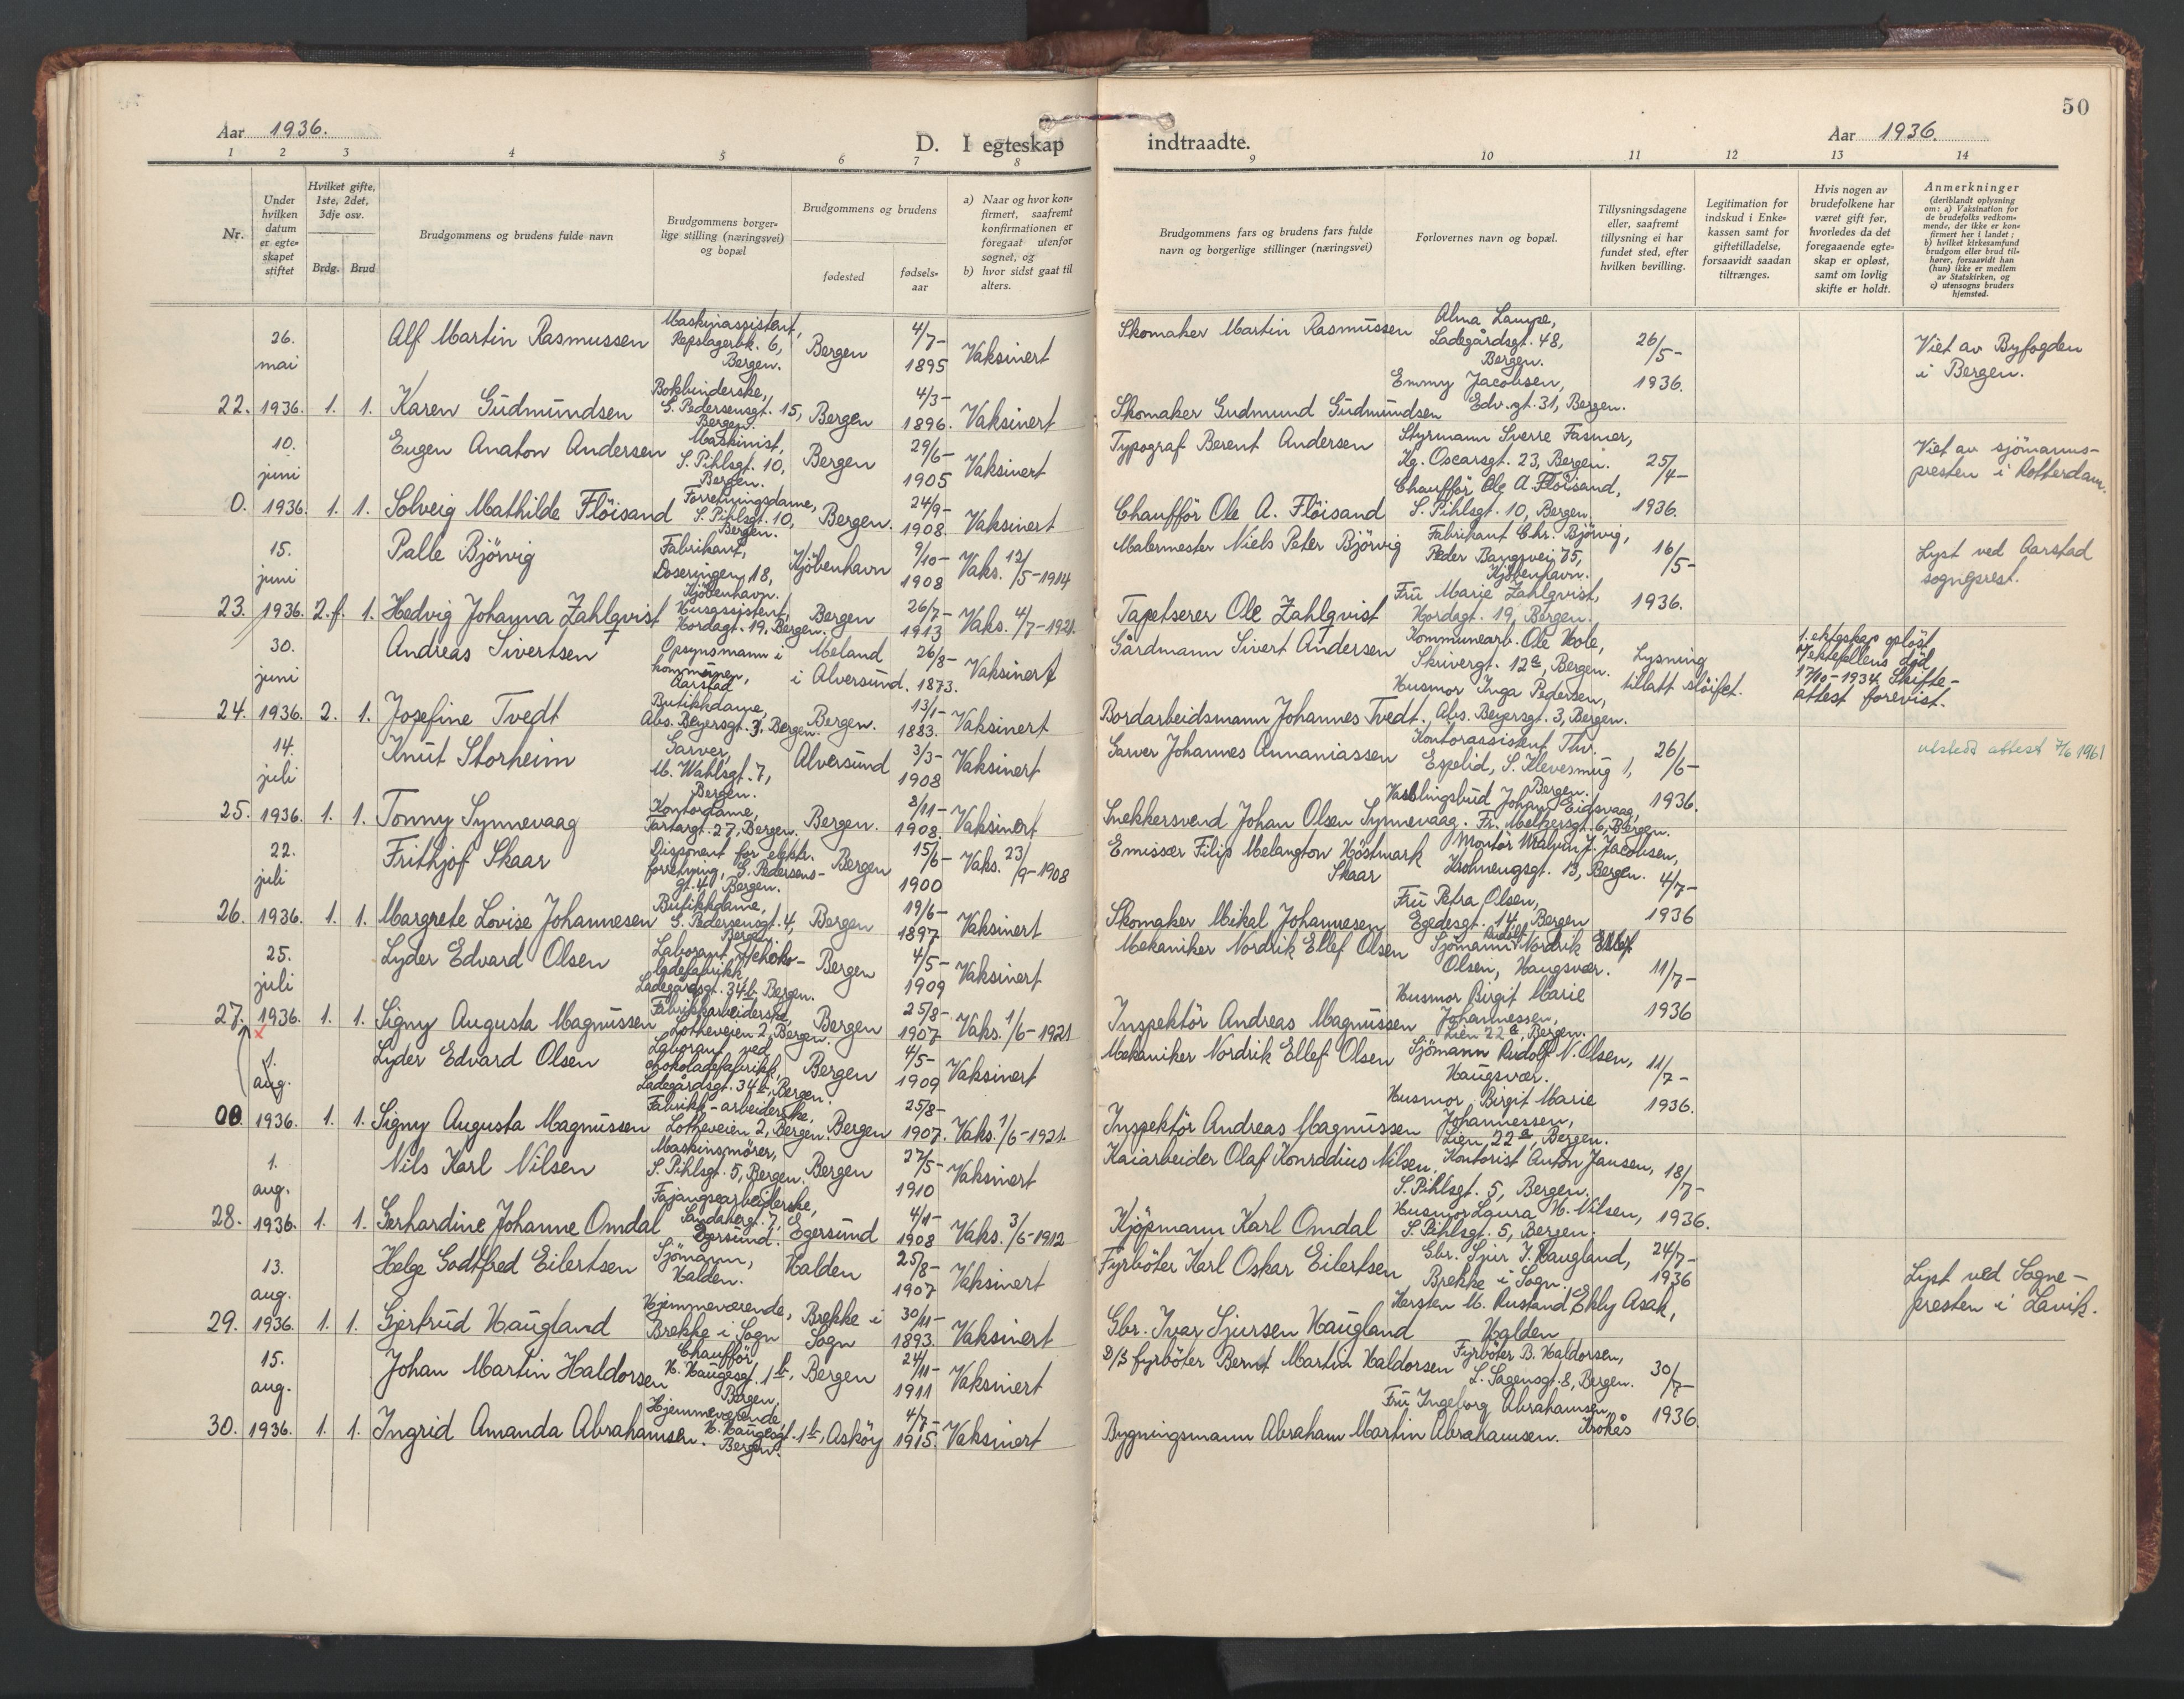 50
Aar 1936.
D. I egteskap indtraadte.
Aar 1936.
1 2 3 4 5 6 7 8 9 10 11 12 13 14
Nr.
Under hvilken datum er egteskapet stiftet
Hvilket gifte, 1ste, 2det, 3dje osv.
Brdg. Brud
Brudgommens og brudens fulde navn
Brudgommens borgerlige stilling (næringsvei) og bopæl
Brudgommens og brudens
fødested
fødselsaar
a) Naar og hvor konfirmert, saafremt konfirmationen er foregaat utenfor sognet, og
b) hvor sidst gaat til alters.
Brudgommens fars og brudens fars fulde navn og borgerlige stillinger (næringsvei)
Forlovernes navn og bopæl.
Tillysningsdagene eller, saafremt tillysning ei har fundet sted, efter hvilken bevilling.
Legitimation for indskud i Enkekassen samt for giftetilladelse, forsaavidt saadan tiltrænges.
Hvis nogen av brudefolkene har været gift før, hvorledes da det foregaaende egteskap er opløst, samt om lovlig skifte er holdt.
Anmerkninger
(deriblandt oplysning om: a) Vaksination for de brudefolks vedkommende, der ikke er konfirmert her i landet; b) hvilket kirkesamfund brudgom eller brud tilhører, forsaavidt han (hun) ikke er medlem av Statskirken, og c) utensogns bruders hjemsted.
26. mai Alf Martin Rasmussen Maskinassistent, Repslagerbk. 6, Bergen. Bergen 4/7-1895 Vaksinert Skomaker Martin Rasmussen Alma Lampe, Ladegårdsgt. 48, Bergen. 26/5- Viet av Byfogden i Bergen.
22. 1936. 1. 1. Karen Gudmundsen Bokbinderske, G. Pedersensgt. 15, Bergen. Bergen 4/3-1896. Vaksinert Skomaker Gudmund Gudmundsen Emmy Jacobsen, Edv. gt. 31, Bergen. 1936.
10. juni Eugen Anaton Andersen Maskinist, S. Pihlsgt. 10, Bergen. Bergen 29/6-1905 Vaksinert Typograf Berent Andersen Styrmann Sverre Fasmer, Kg. Oscarsgt. 23, Bergen. 25/4- Viet av sjömannspresten i Rotterdam.
0. 1936. 1. 1. Solveig Mathilde Flöisand Forretningsdame, S. Pihlsgt. 10, Bergen. Bergen. 24/9-1908. Vaksinert Chaufför Ole A. Flöisand Chaufför Ole A. Flöisand, S. Pihlsgt. 10, Bergen. 1936.
15. juni Palle Björvig Fabrikant, Doseringen 18, Kjöbenhavn. Kjöbenhavn 9/10-1908 Vaks. 12/5-1914 Malermester Niels Peter Björvig Fabrikant Chr. Björvig, Peder Bangsvei 75, Kjöbenhavn. 16/5- Lyst ved Aarstad sogneprest.
23. 1936. 2.f. 1. Hedvig Johanna Zahlqvist Husassistent, Nordagt. 19, Bergen. Bergen 26/7-1913 Vaks. 4/7-1921. Tapetserer Ole Zahlqvist Fru Marie Zahlqvist, Nordagt. 19, Bergen. 1936.
30. juni Andreas Sivertsen Opsynsmann i kommunen, Aarstad Meland i Alversund. 26/8-1873. Vaksinert Gårdmann Sivert Andersen Kommunearb. Ole Hole, Skrivergt. 12a, Bergen. Lysning tillatt slöifet. 1. ekteskap oplöst v/ ektefellens död 17/10-1934. Skifteattest forevist.
24. 1936. 2. 1. Josefine Tvedt Butikkdame, Abs. Beyersgt. 3, Bergen. Bergen. 13/1-1883. Vaksinert Bordarbeidsmann Johannes Tvedt. Husmor Inga Pedersen, Abs. Beyersgt. 3, Bergen.
14. juli Knut Storheim Garver, M. Wahlsgt. 7, Bergen. Alversund 3/3-1908 Vaksinert Garver Johannes Annaniassen Kontorassistent Thv. Espelid, S. Klevesmug 1, Bergen. 26/6- utstedt attest 7/6 1961
25. 1936. 1. 1. Tonny Synnevaag Kontordame, Tartargt. 27, Bergen. Bergen. 8/11-1908. Vaksinert Snekkersvend Johan Olsen Synnevaag. Johan Eidsvaag, Fr. Meltzersgt. 6, Bergen. 1936.
22. juli Frithjof Skaar Disponent for elektr. forretning, G. Pedersensgt. 4, Bergen. Bergen 15/6-1900 Vaks. 23/9-1908 Emissær Filip Melangton Höstmark Skaar Montör J. Jacobsen, Krohnengsgt. 13, Bergen. 4/7-
26. 1936. 1. 1. Margrete Lovise Johannesen Butikkdame, G. Pedersensgt. 4, Bergen. Bergen 19/6-1897 Vaksinert Skomaker Mikal Johannesen Fru Petra Olsen, Egedesgt. 14, Bergen 1936
25. juli Lyder Edvard Olsen Laborant v/chokoladefabrikk, Ladegårdsgt. 34b, Bergen. Bergen 4/5-1909 Vaksinert Mekaniker Nordrik Ellef Olsen Sjömann Rudolf Nordrik Ellef Olsen, Haugsvær. 11/7-
27. 1936. 1. 1. Signy Augusta Magnussen Fabrikkarbeiderske, Lotheveien 2, Bergen. Bergen 25/8-1907 Vaks. 1/6-1921 Inspektör Andreas Magnussen Husmor Birgit Marie Johannessen, Lien 22a, Bergen. 1936
1. aug. Lyder Edvard Olsen Laborant ved chokoladefabrikk, Ladegårdsgt. 34b, Bergen. Bergen 4/5-1909 Vaksinert Mekaniker Nordrik Ellef Olsen Sjömann Rudolf N. Olsen, Haugsvær. 11/7-
00. 1936. 1. 1. Signy Augusta Magnussen Fabrikk-arbeiderske, Lotheveien 2, Bergen. Bergen 25/8-1907. Vaks. 1/6-1921. Inspektör Andreas Magnussen Husmor Birgit Marie Johannessen, Lien 22a, Bergen. 1936.
1. aug. Nils Karl Nilsen Maskinsmörer, S. Pihlsgt. 5, Bergen. Bergen 27/5-1910 Vaksinert Kaiarbeider Olaf Konradius Nilsen. Kontorist Anton Jansen, S. Pihlsgt. 5, Bergen. 18/7-
28. 1936. 1. 1. Gerhardine Johanne Omdal Fajangsearbeiderske, Sandabergt. 7, Egersund. Egersund 4/11-1908 Vaks. 3/6-1912 Kjöpmann Karl Omdal Husmor Laura H. Nilsen, S. Pihlsgt. 5, Bergen. 1936.
13. aug. Helge Godtfred Eilertsen Sjömann, Halden. Halden 25/8-1907 Vaksinert Fyrböter Karl Oskar Eilertsen Gbr. Sjur I. Haugland, Brekke i Sogn. 24/7-1936 Lyst ved Sognepresten i Lavik.
29. 1936. 1. 1. Gjertrud Haugland Hjemmeværende, Brekke i Sogn Brekke i Sogn 30/11-1893. Vaksinert Gbr. Ivar Sjursen Haugland Karsten M. Rustand, Ekly Asak, Halden
15. aug. Johan Martin Haldorsen Chaufför, H. Haugesgt. 1b, Bergen. Bergen 24/11-1911 Vaksinert D/S fyrböter Bernt Martin Haldorsen Fyrböter B. Haldorsen, L. Sagensgt. 8, Bergen. 30/7-
30. 1936. 1. 1. Ingrid Amanda Abrahamsen. Hjemmeværende, H. Haugesgt. 1b, Bergen. Asköy 4/7-1915. Vaksinert Bygningsmann Abraham Martin Abrahamsen. Fru Ingeborg Abrahamsen, Krokås 1936.